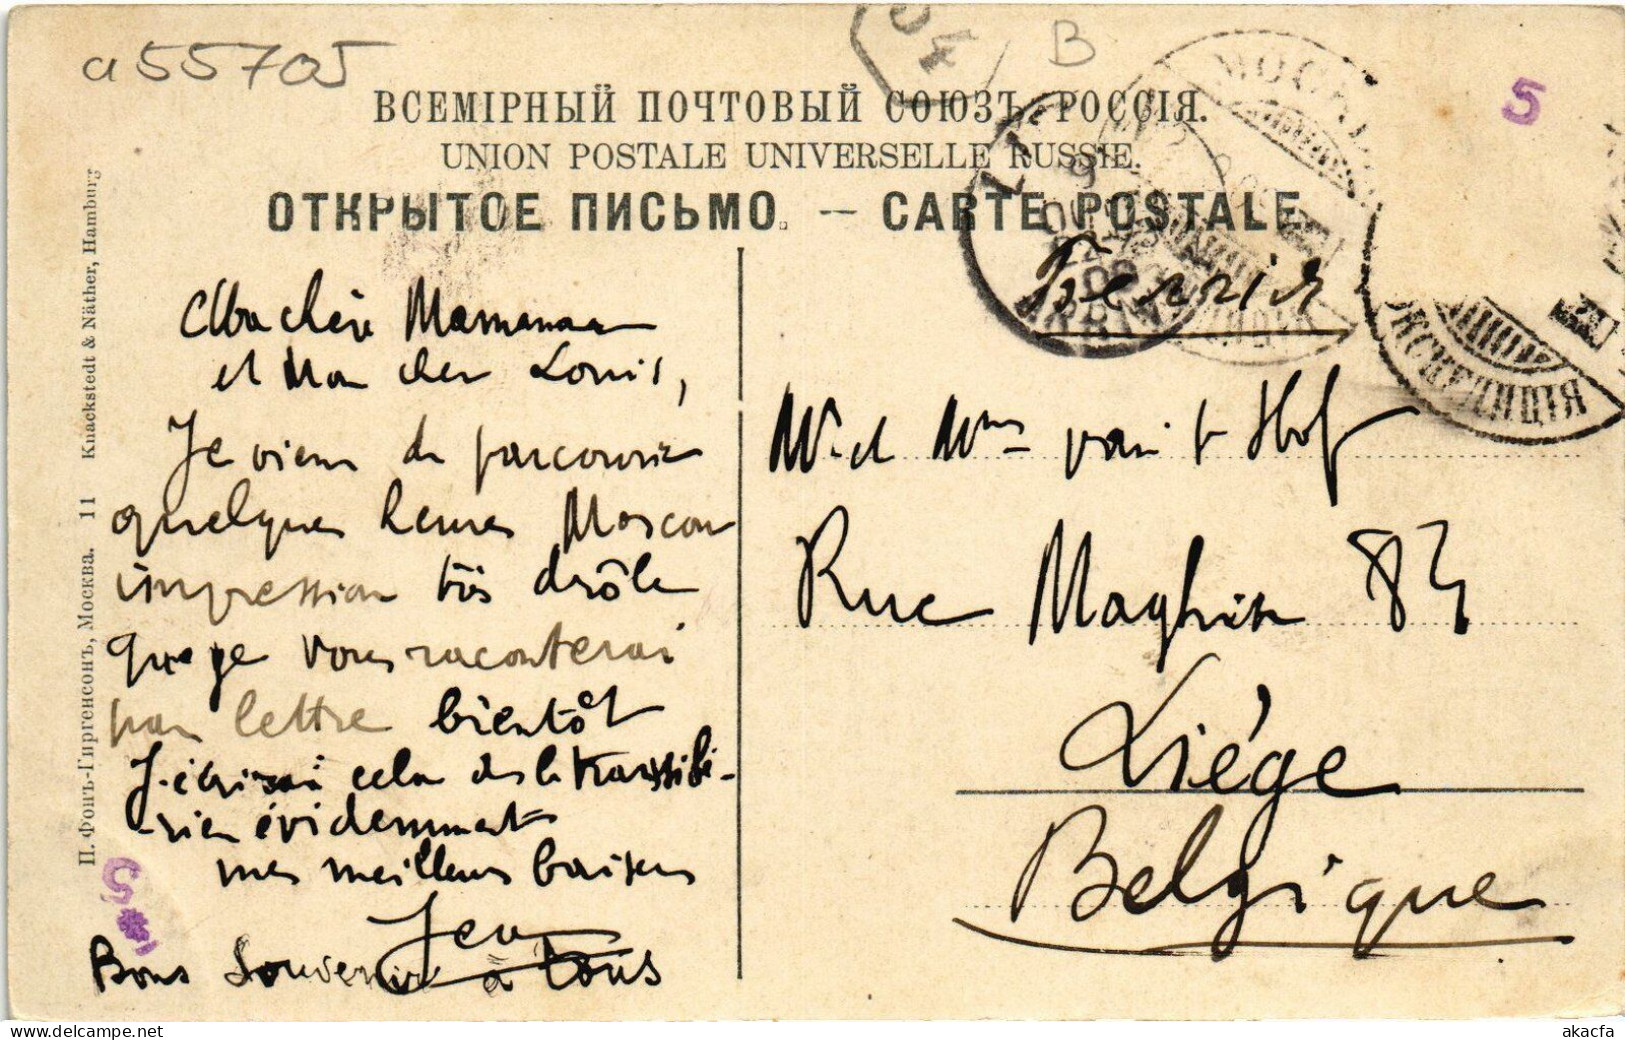 a55705
B
5
ВСЕМІРНЫЙ ПОЧТОВЫЙ СОЮЗЪ. РОССІЯ.
UNION POSTALE UNIVERSELLE RUSSIE.
ОТКРЫТОЕ ПИСЬМО. — CARTE POSTALE
П. Фонъ-Гиргенсонъ, Москва. 11 Knackstedt & Näther, Hamburg
Ma chère Maman
et Mon cher Louis,
Je viens de parcourir
quelques heures Moscou
impression très drôle
que je vous raconterai
par lettre bientôt
J'écrirai cela du le transsibé-
-rien évidemment
mes meilleurs baisers
Jean
Bons Souvenirs à tous
Mr et Mme van 't Hof
Rue Maghin 83
Liége
Belgique
ЭКСПЕДИЦІЯ
5
akacfa